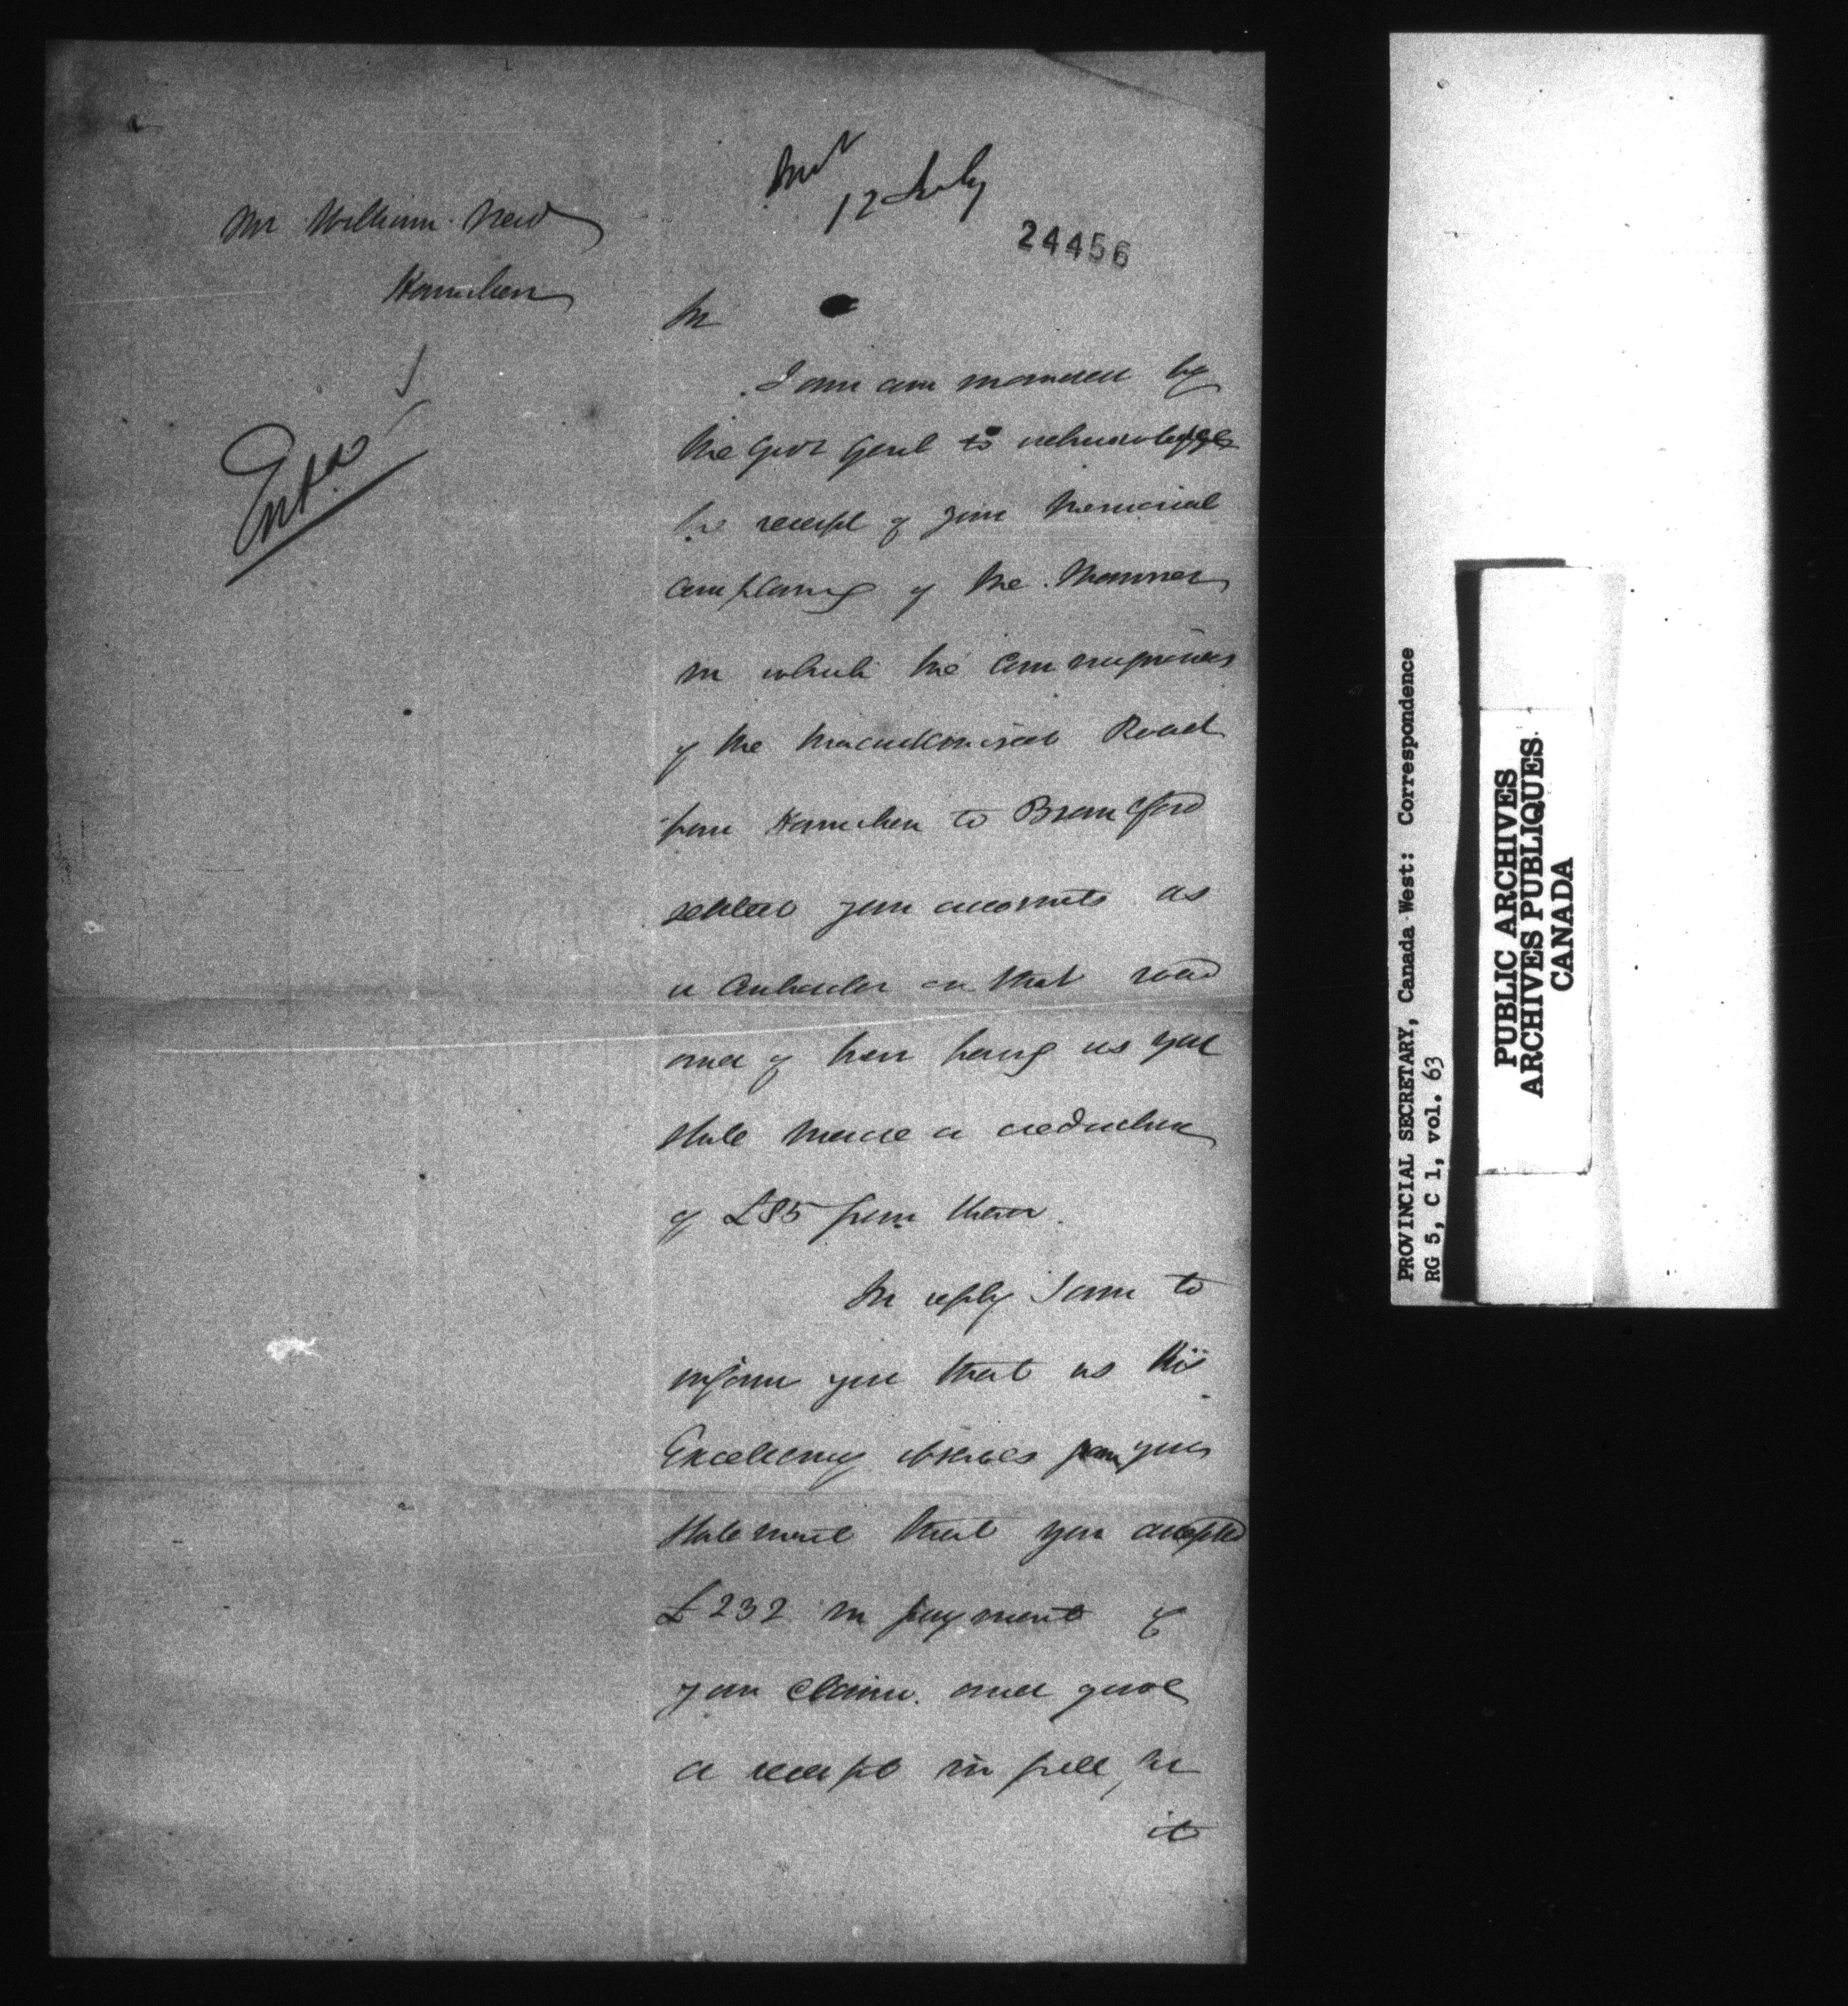 12 July
24456
Mr William
Hamilton
Entd
Sir
I am commanded by
the Govr Genl to acknowledge
the receipt of your Memorial
complaining of the Manner
in which the Commissioners
of the Macadamised Road
from Hamilton to Brantford
settled your accounts as
a Contractor on that road
and of their having as you
state made a deduction
of £85 from them.
In reply I am to
inform you that as His
Excellency observes from your
statement that you accepted
£232 in payment of
your claim. and gave
a receipt in full,
it
PROVINCIAL SECRETARY, Canada West: Correspondence
RG 5, C 1, vol. 63
PUBLIC ARCHIVES
ARCHIVES PUBLIQUES
CANADA